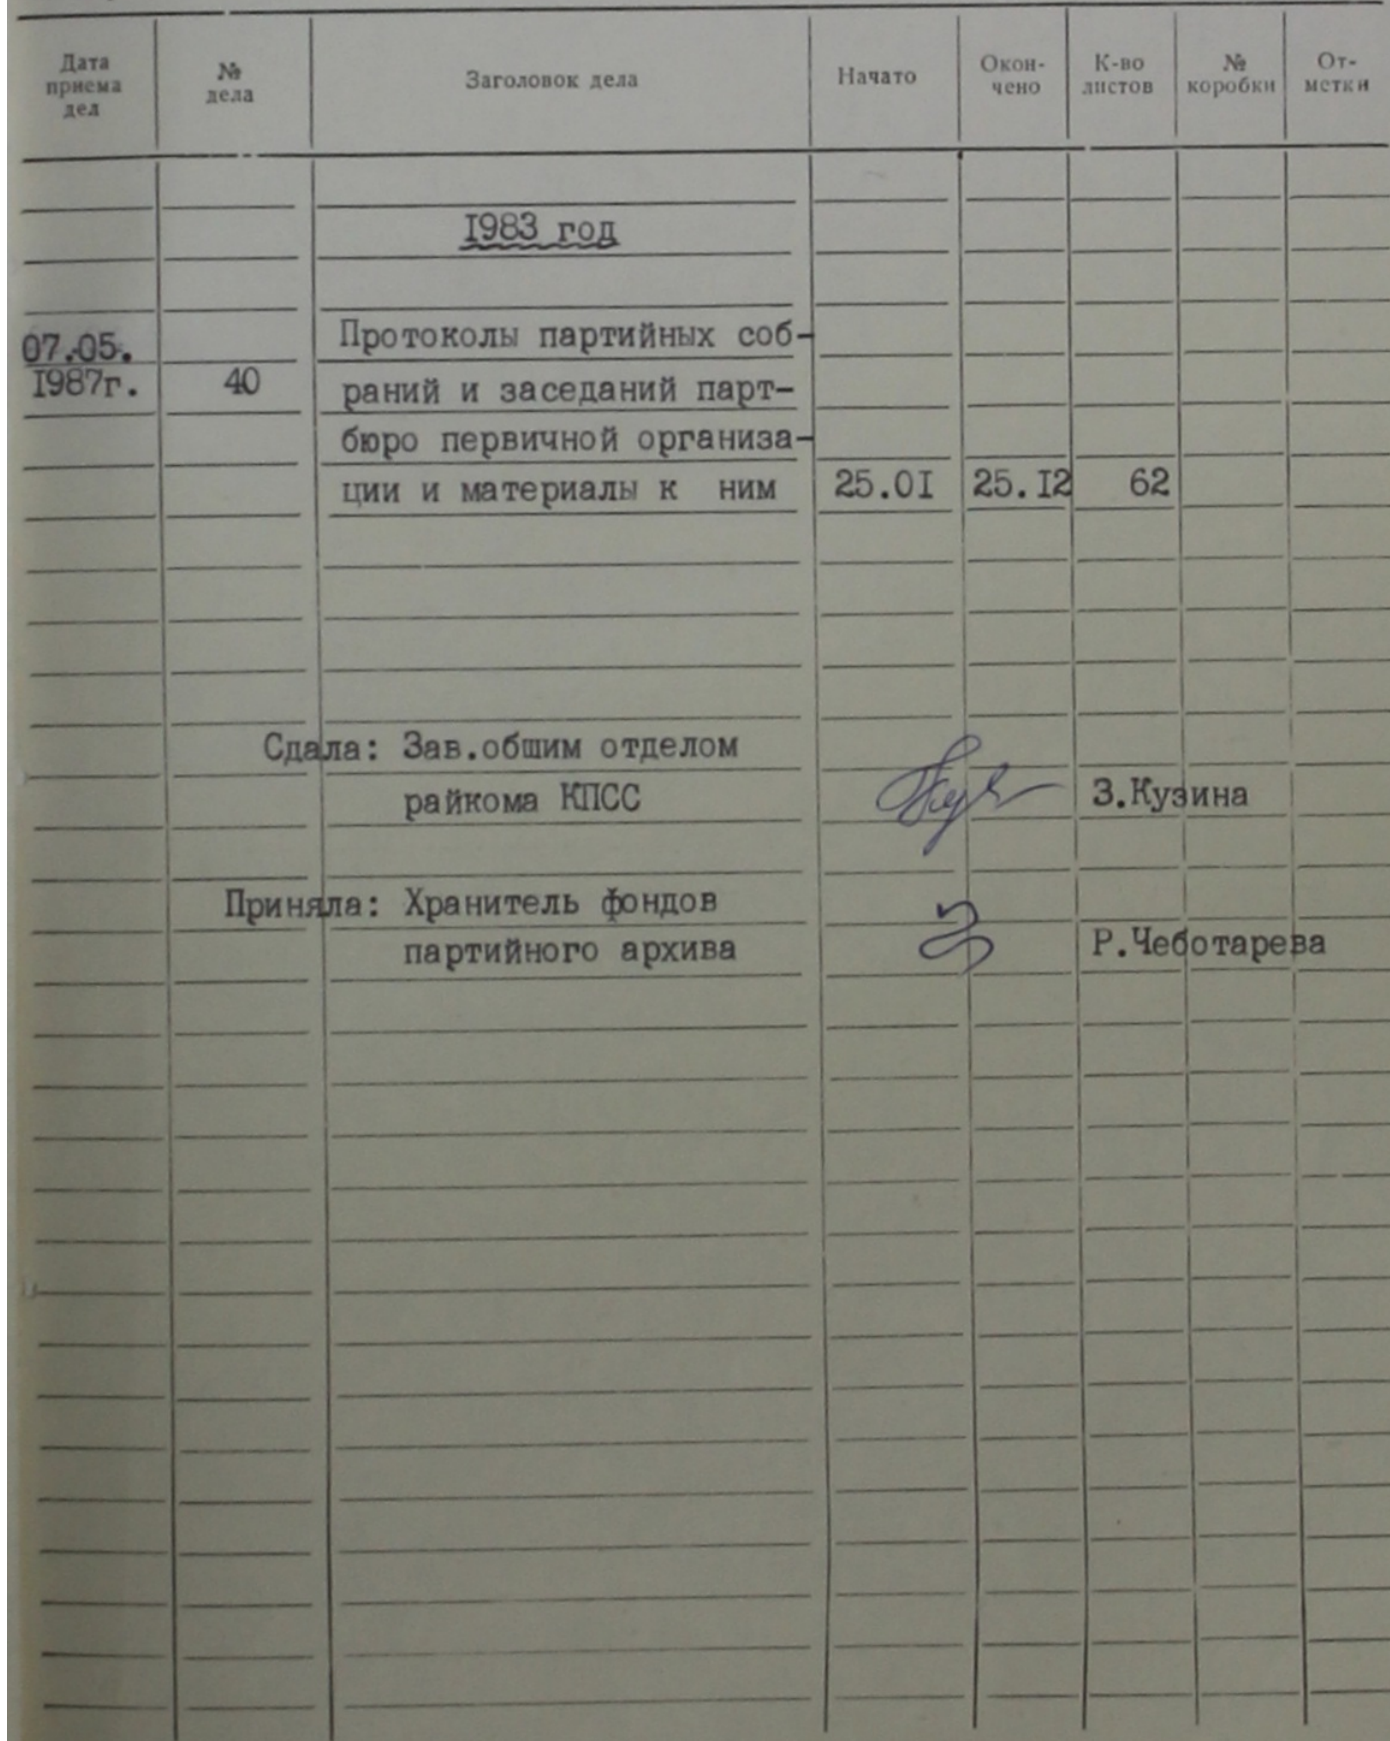 Дата приема дел
№ дела
Заголовок дела
Начато
Окон-чено
К-во листов
№ коробки
От-метки
1983 год
07.05. Протоколы партийных соб-
1987г. 40 раний и заседаний парт-
бюро первичной организа-
ции и материалы к ним 25.01 25.12 62
Сдала: Зав.обшим отделом
райкома КПСС З.Кузина
Приняла: Хранитель фондов
партийного архива Р.Чеботарева